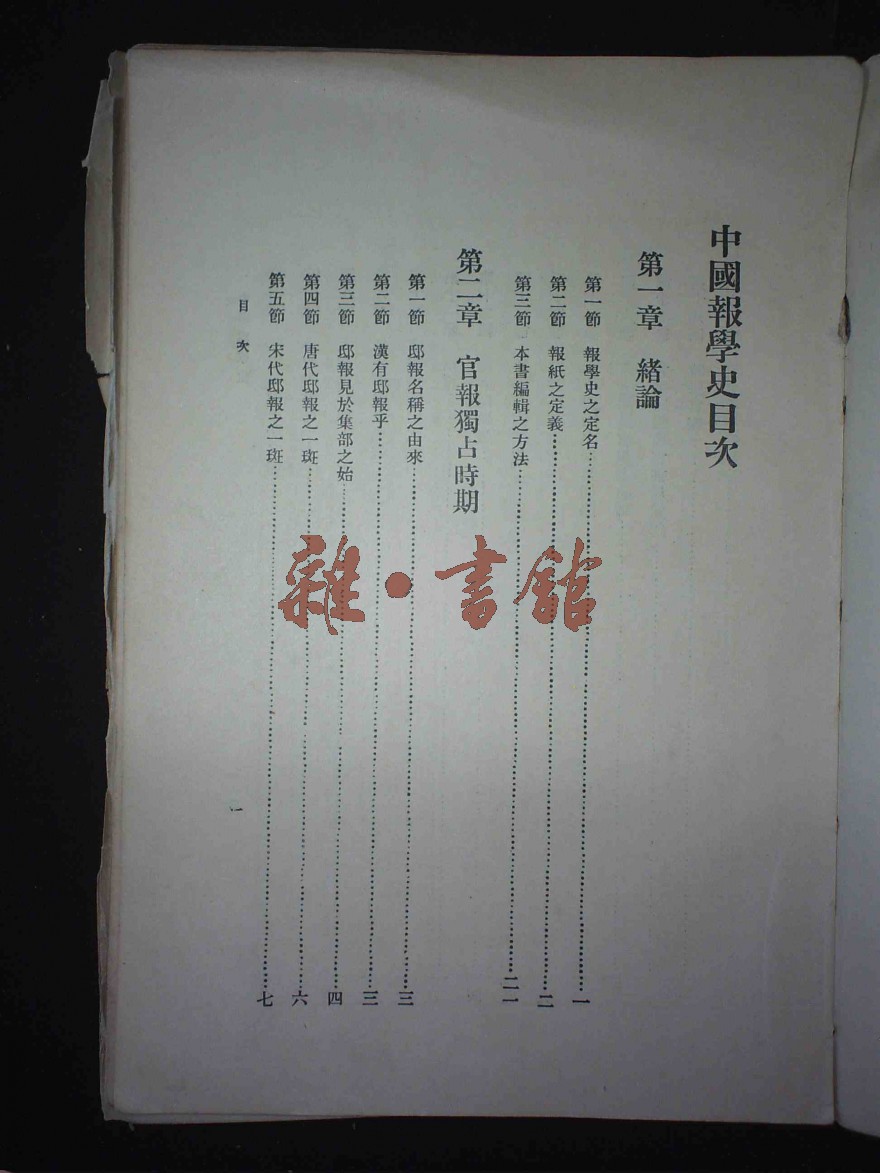 中國報學史目次
第一章 緒論
第一節 報學史之定名……一
第二節 報紙之定義……二
第三節 本書編輯之方法……二一
第二章 官報獨占時期
第一節 邸報名稱之由來……三
第二節 漢有邸報乎……三
第三節 邸報見於集部之始……四
第四節 唐代邸報之一斑……六
第五節 宋代邸報之一斑……七
目次
一
雜·書館